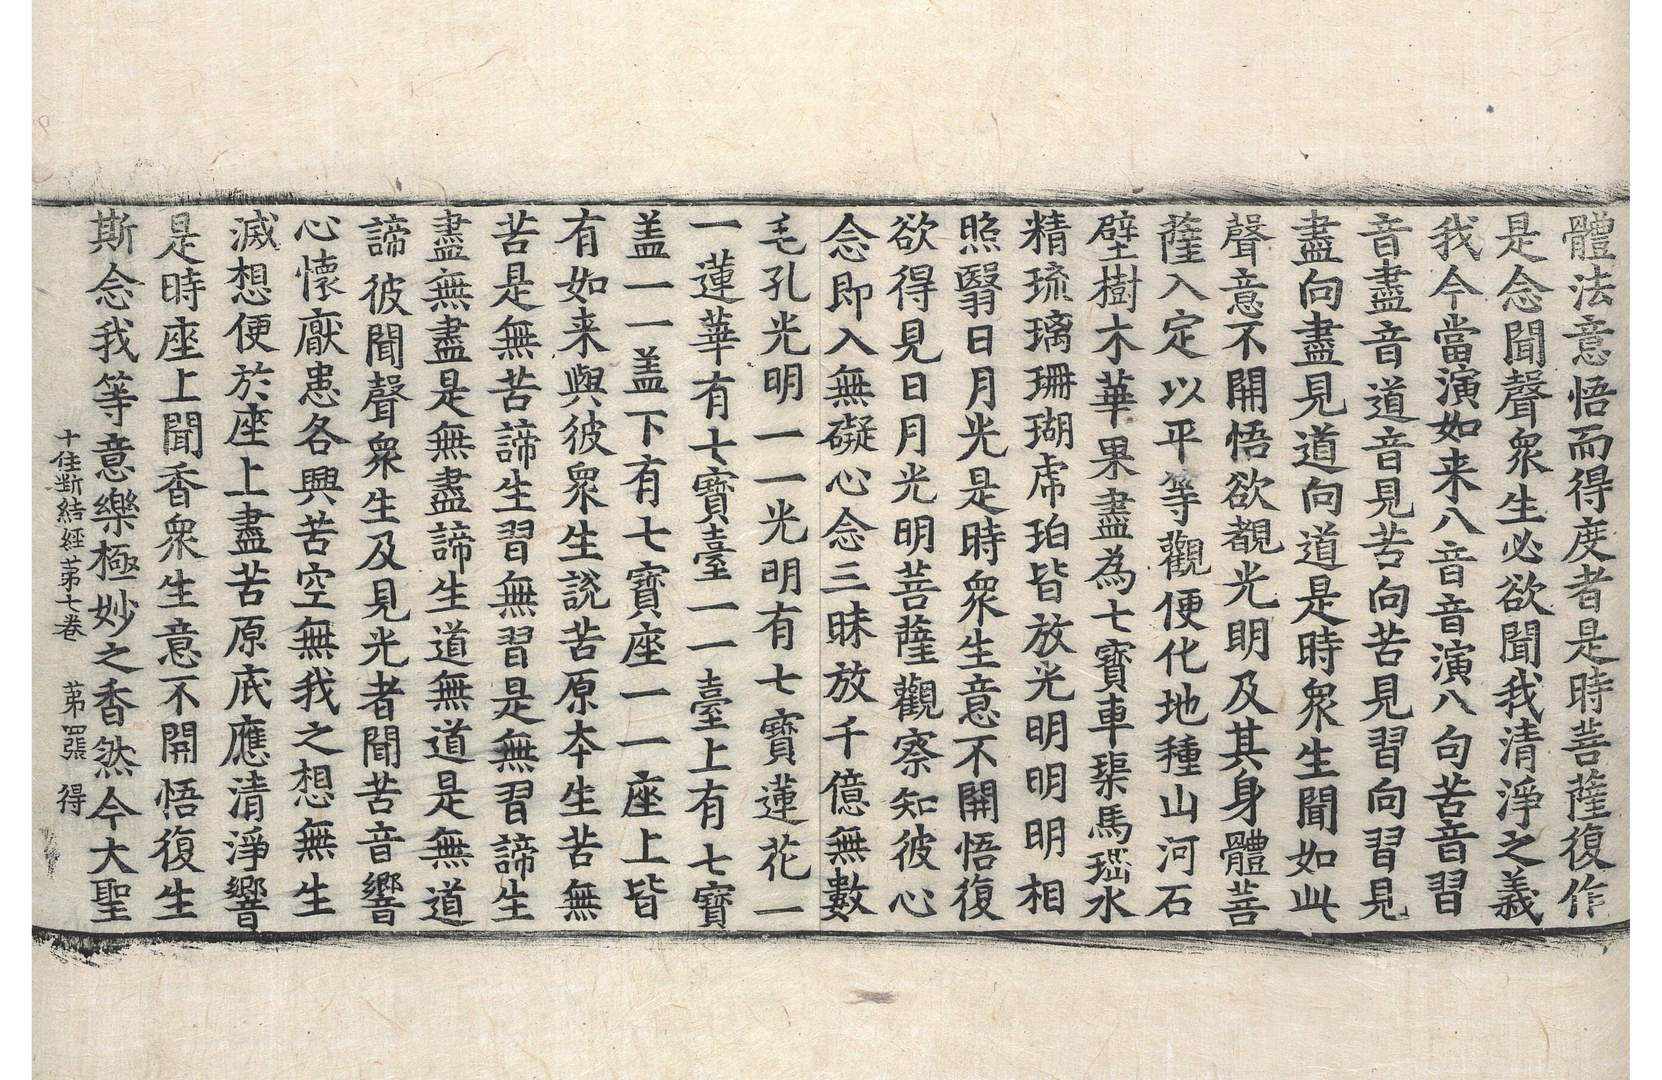 體法意悟而得度者是時菩薩復作
是念聞聲衆生必欲聞我清淨之義
我今當演如来八音音演八句苦音習
音盡音道音見苦向苦見習向習見
盡向盡見道向道是時衆生聞如此
聲意不開悟欲覩光明及其身體菩
薩入定以平等觀便化地種山河石
壁樹木華果盡為七寶車𤦲馬瑙水
精琉璃珊瑚虎珀皆放光明明明相
照翳日月光是時衆生意不開悟復
欲得見日月光明菩薩觀察知彼心
念即入無礙心念三昧放千億無數
毛孔光明一一光明有七寶蓮花一
一蓮華有七寶臺一一臺上有七寶
盖一一盖下有七寶座一一座上皆
有如来與彼衆生説苦原夲生苦無
苦是無苦諦生習無習是無習諦生
盡無盡是無盡諦生道無道是無道
諦彼聞聲衆生及見光者聞苦音響
心懷猒患各興苦空無我之想無生
滅想便於座上盡苦原底應清淨響
是時座上聞香衆生意不開悟復生
斯念我等意樂極妙之香然今大聖
十住断結經苐七卷 苐四張 得